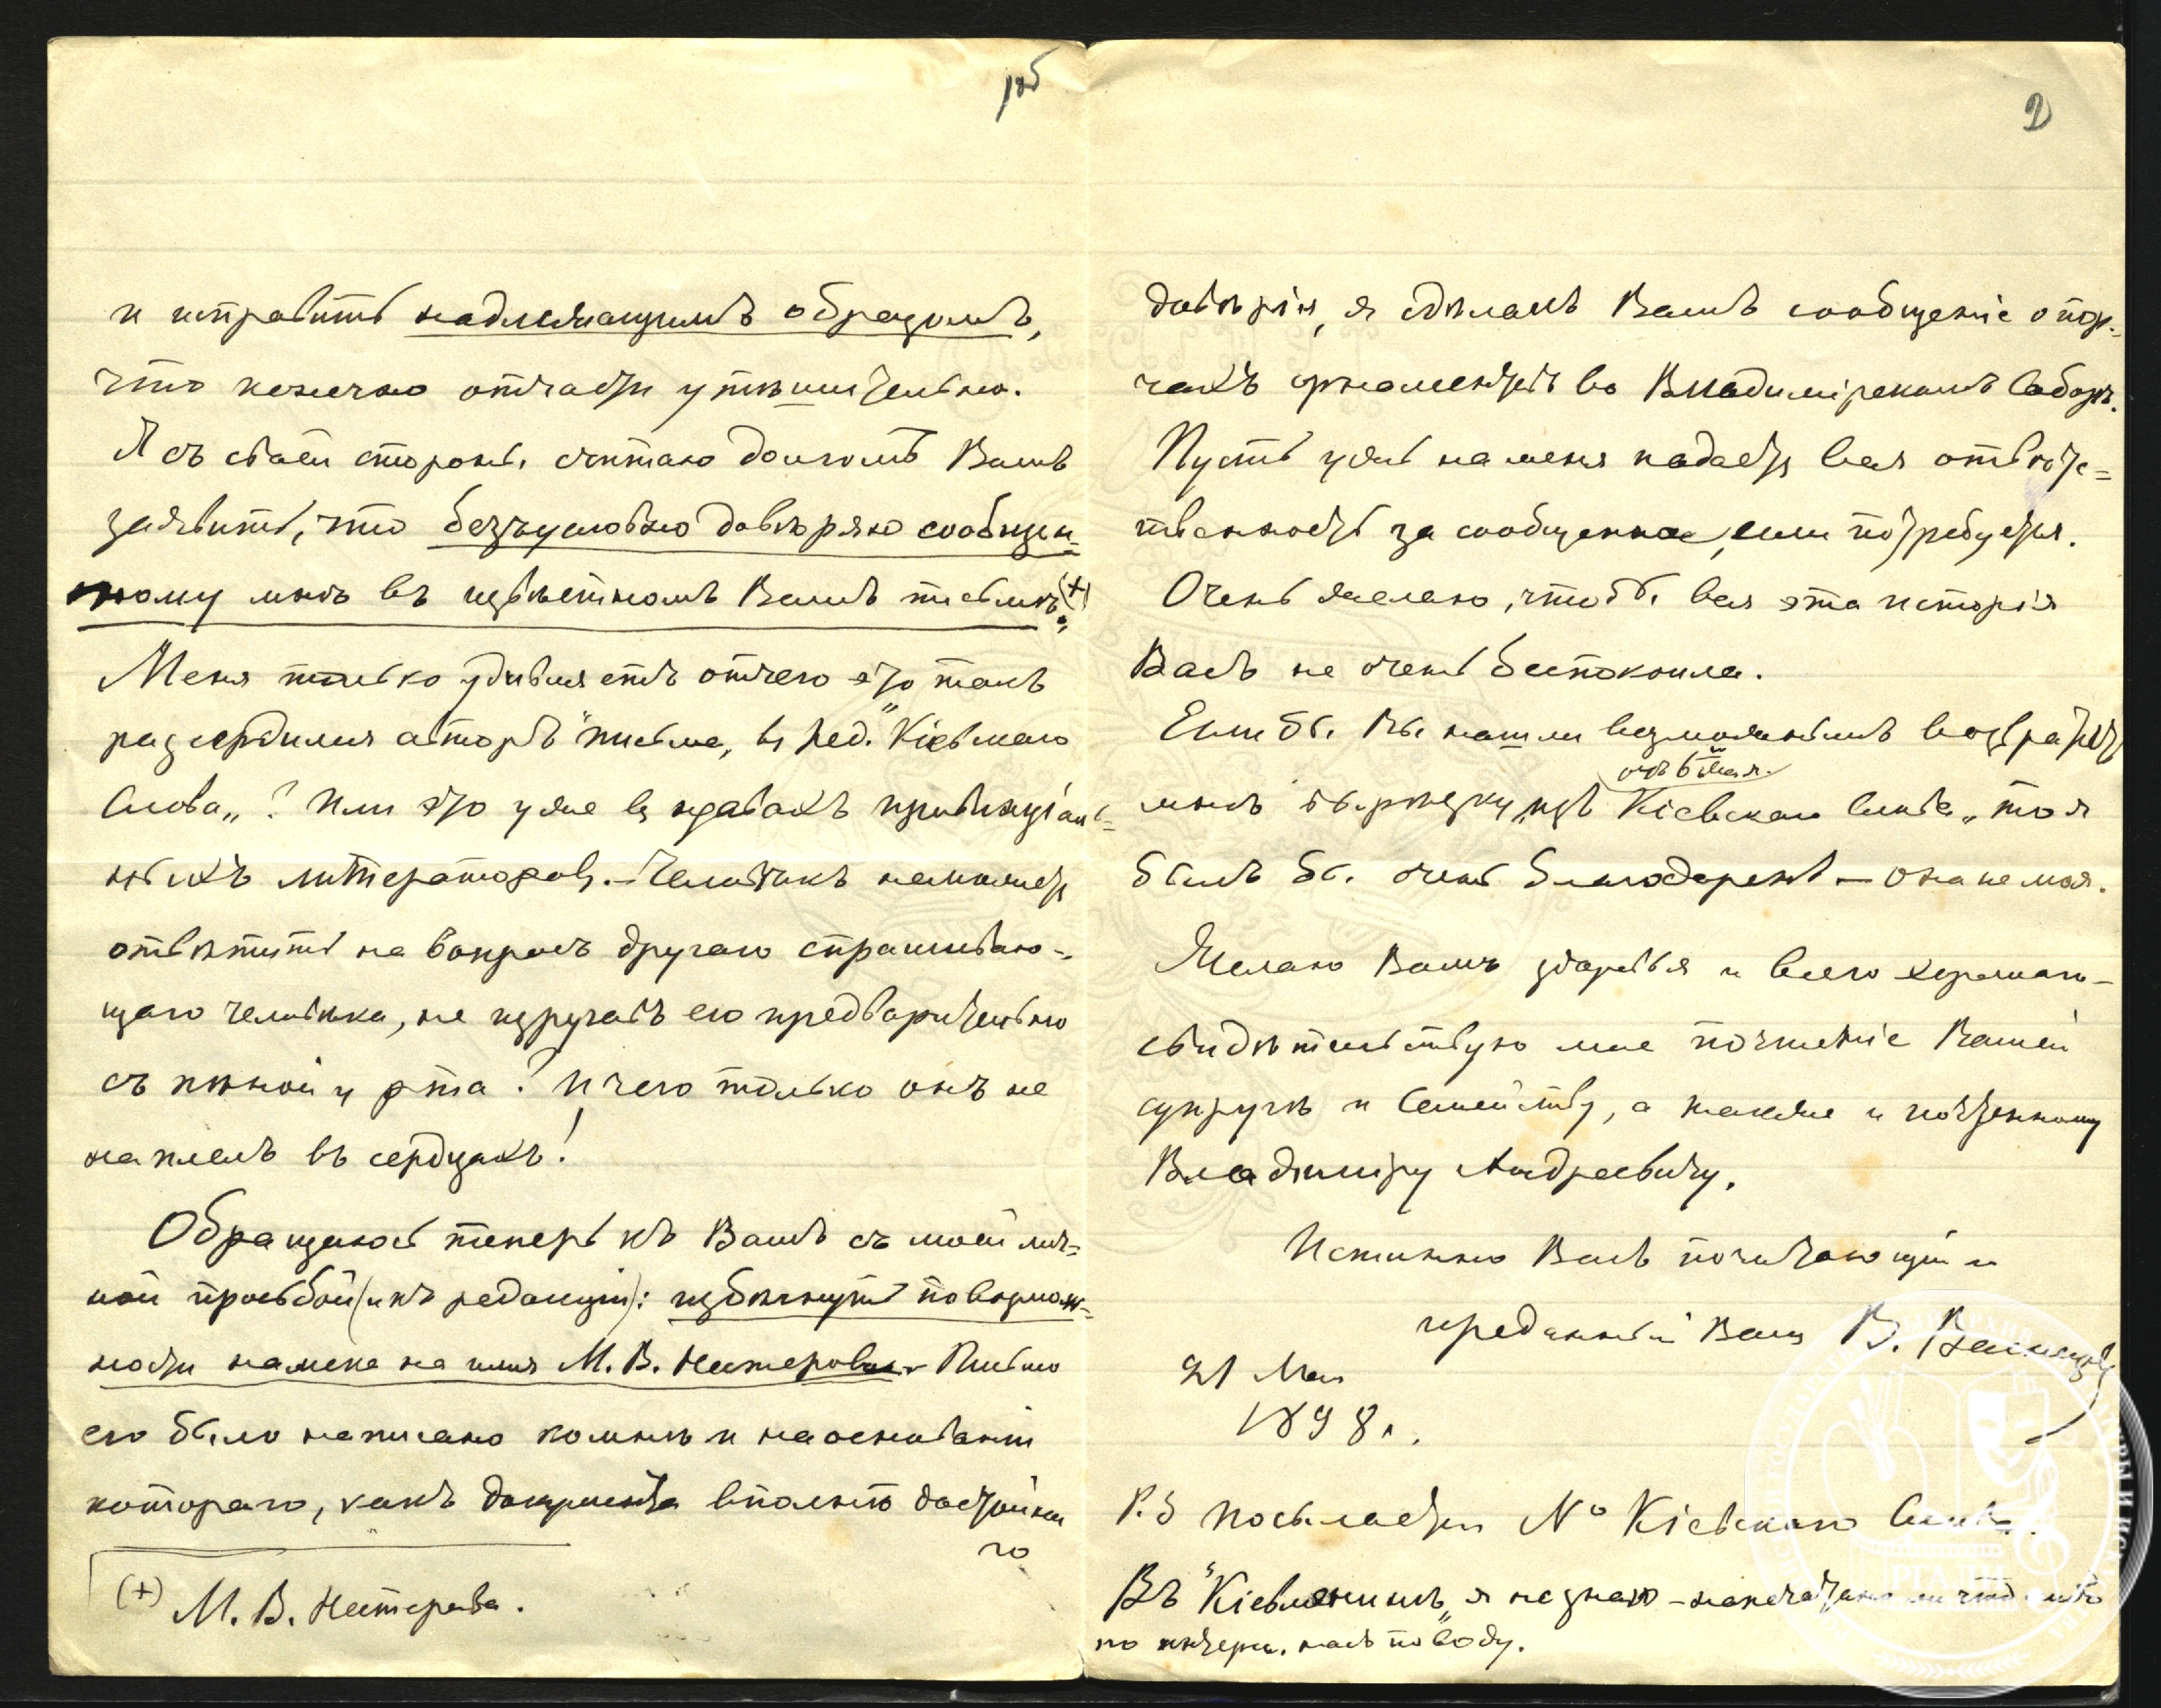 1об
и исправить надлежащимъ образомъ,
что конечно отчасти утѣшительно.
Я съ своей стороны считаю долгомъ Вамъ
заявить, что безъусловно довѣряю сообщен=
ному мнѣ въ извѣстномъ Вамъ письмѣ (+)
Меня только удивляетъ отчего это такъ
разсердился авторъ "письма, въ ред." Кіевскаго
Слова„? Или это уже въ нравахъ провинціаль=
ныхъ литераторовъ. – Человѣкъ не можетъ
отвѣтить на вопросъ другаго спрашиваю=
щаго человѣка, не изругавъ его предварительно
съ пѣной у рта? И чего только онъ не
наплелъ въ сердцахъ!
Обращаюсь теперь къ Вамъ съ моей лич=
ной просьбой (и къ редакціи): избѣгнуть по возмож=
ности намека на имя М. В. Нестерова. Письмо
его было написано ко мнѣ и на основаніи
котораго, какъ документа вполнѣ достойна
го
(+) М. В. Нестерова.
2
довѣрія, я сдѣлалъ Вамъ сообщеніе о пор=
чахъ орнаментовъ во Владимірскомъ Соборѣ.
Пусть ужъ на меня падаетъ вся отвѣтс=
твенность за сообщенное, если потребуется.
Очень желаю, чтобы вся эта исторія
Васъ не очень безпокоила.
Если бы Вы нашли возможнымъ возвратить
отъ 6 Мая.
мнѣ вырѣзку изъ „Кіевскаго Слова„ то я
былъ бы очень благодаренъ – она не моя.
Желаю Вамъ здоровья и всего хорошаго –
свидѣтельствую мое почтеніе Вашей
супругѣ и Семейству, а также и почтенному
Владиміру Андреевичу.
Истинно Васъ почитающій и
преданный Вамъ В. Васнецовъ
21 Мая
1898 г.
P.S Посылается № Кіевскаго Слова.
Въ "Кіевлянинѣ„ я не знаю – напечатано ли что либо
по интерес. насъ поводу.